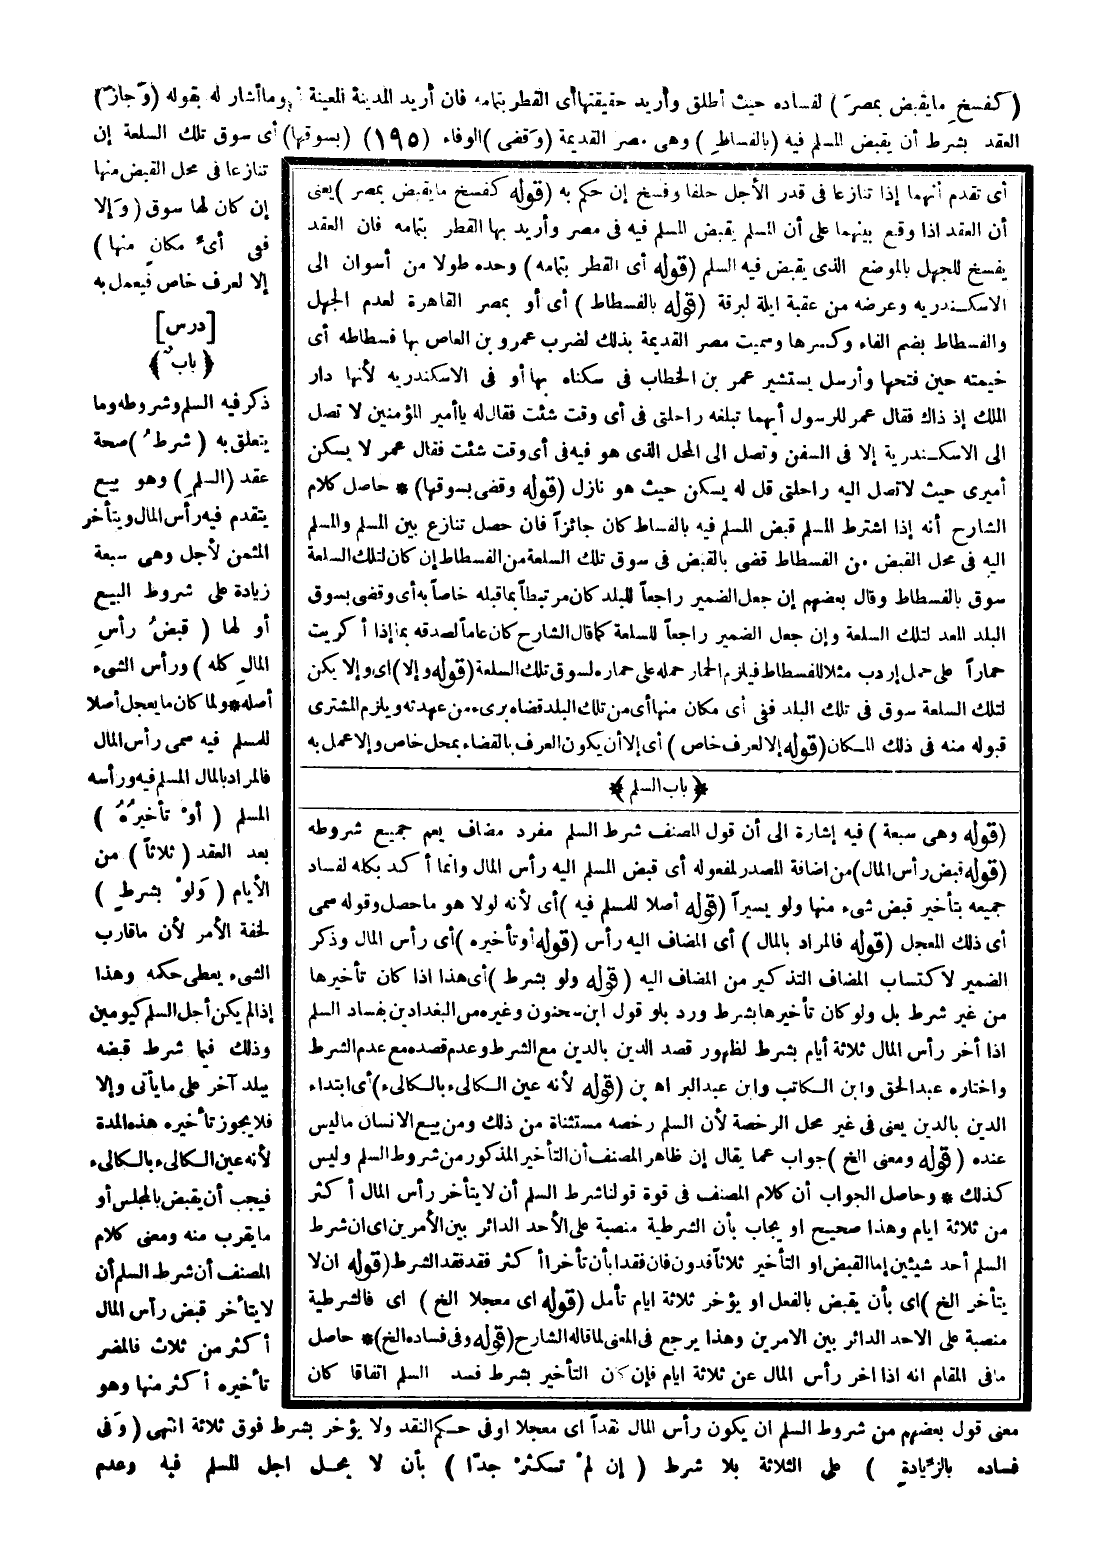 (كفسخ مايقبض بمصر) لفساده حيث أطلق وأريد حقيقتها أى القطر بتمامه فان أريد المدينة المعينة وما أشار له بقوله (وَجازَ)
العقد بشرط أن يقبض المسلم فيه (بالفسطاط) وهى مصر القديمة (وَقضى) الوفاء (١٩٥) (بسوقها) أى سوق تلك السلعة إن
تنازعا فى محل القبض منها
إن كان لها سوق (وَإلا
ففى أىِّ مكانٍ منها)
إلا لعرف خاص فيعمل به
[درس]
﴿باب﴾
ذكر فيه السلم وشروطه وما
يتعلق به (شرطُ) صحة
عقد (السلمِ) وهو بيع
يتقدم فيه رأس المال ويتأخر
المثمن لأجل وهى سبعة
زيادة على شروط البيع
أو لها (قبضُ رأسِ
المالِ كله) ورأس الشىء
أصله * ولما كان ما يعجل أصلا
للمسلم فيه سمى رأس المال
فالمراد بالمال المسلم فيه ورأسه
المسلم (أوْ تأخيرُهُ)
بعد العقد (ثلاثاً) من
الأيام (وَلوْ بشرطٍ)
لخفة الأمر لأن ماقارب
الشىء يعطى حكمه وهذا
إذا لم يكن أجل السلم كيومين
وذلك فيما شرط قبضه
ببلد آخر على ما يأتى وإلا
فلا يجوز تأخيره هذه المدة
لأنه عين الكالىء بالكالىء
فيجب أن يقبض بالمجلس أو
مايقرب منه ومعنى كلام
المصنف أن شرط السلم أن
لا يتأخر قبض رأس المال
أكثر من ثلاث فالمضر
تأخيره أكثر منها وهو
أى تقدم أنهما إذا تنازعا فى قدر الأجل حلفا وفسخ إن حكم به (قوله كفسخ مايقبض بمصر) يعنى
أن العقد اذا وقع بينهما على أن المسلم يقبض المسلم فيه فى مصر وأريد بها القطر بتمامه فان العقد
يفسخ للجهل بالموضع الذى يقبض فيه السلم (قوله أى القطر بتمامه) وحده طولا من أسوان الى
الاسكندريه وعرضه من عقبة ايلة لبرقة (قوله بالفسطاط) أى أو بمصر القاهرة لعدم الجهل
والفسطاط بضم الفاء وكسرها وسميت مصر القديمة بذلك لضرب عمرو بن العاص بها فسطاطه أى
خيمته حين فتحها وأرسل يستشير عمر بن الخطاب فى سكناه بها أو فى الاسكندريه لأنها دار
الملك إذ ذاك فقال عمر للرسول أيهما تبلغه راحلتى فى أى وقت شئت فقال له ياأمير المؤمنين لا تصل
الى الاسكندرية إلا فى السفن وتصل الى المحل الذى هو فيه فى أى وقت شئت فقال عمر لا يسكن
أميرى حيث لا تصل اليه راحلتى قل له يسكن حيث هو نازل (قوله وقضى بسوقها) * حاصل كلام
الشارح أنه إذا اشترط المسلم قبض المسلم فيه بالفسطاط كان جائزاً فان حصل تنازع بين المسلم والمسلم
اليه فى محل القبض من الفسطاط قضى بالقبض فى سوق تلك السلعة من الفسطاط إن كان لتلك السلعة
سوق بالفسطاط وقال بعضهم إن جعل الضمير راجعاً للبلد كان مرتبطاً بماقبله خاصاً به أى وقضى بسوق
البلد المعد لتلك السلعة وإن جعل الضمير راجعاً للسلعة كما قال الشارح كان عاماً لصدقه بما إذا أكريت
حماراً على حمل إردب مثلا للفسطاط فيلزم الحمار حمله على حماره لسوق تلك السلعة (قوله وإلا) اى وإلا يكن
لتلك السلعة سوق فى تلك البلد ففى أى مكان منها أى من تلك البلد قضاه برىء من عهدته ويلزم المشترى
قبوله منه فى ذلك المكان (قوله إلا لعرف خاص) أى إلا أن يكون العرف بالقضاء بمحل خاص وإلا عمل به
﴿باب السلم﴾
(قوله وهى سبعة) فيه إشارة الى أن قول المصنف شرط السلم مفرد مضاف يعم جميع شروطه
(قوله قبض رأس المال) من اضافة المصدر لمفعوله أى قبض المسلم اليه رأس المال وانما أكد بكله لفساد
جميعه بتأخير قبض شىء منها ولو يسيراً (قوله أصلا للمسلم فيه) أى لأنه لولا هو ماحصل وقوله سمى
أى ذلك المعجل (قوله فالمراد بالمال) أى المضاف اليه رأس (قوله أو تأخيره) أى رأس المال وذكر
الضمير لاكتساب المضاف التذكير من المضاف اليه (قوله ولو بشرط) أى هذا اذا كان تأخيرها
من غير شرط بل ولو كان تأخيرها بشرط ورد بلو قول ابن سحنون وغيره من البغدادين بفساد السلم
اذا أخر رأس المال ثلاثة أيام بشرط لظهور قصد الدين بالدين مع الشرط وعدم قصده مع عدم الشرط
واختاره عبدالحق وابن الكاتب وابن عبدالبر اه بن (قوله لأنه عين الكالىء بالكالىء) أى ابتداء
الدين بالدين يعنى فى غير محل الرخصة لأن السلم رخصه مستثناة من ذلك ومن بيع الانسان ماليس
عنده (قوله ومعنى الخ) جواب عما يقال إن ظاهر المصنف أن التأخير المذكور من شروط السلم وليس
كذلك * وحاصل الجواب أن كلام المصنف فى قوة قولنا شرط السلم أن لا يتأخر رأس المال أكثر
من ثلاثة ايام وهذا صحيح او يجاب بأن الشرطية منصبة على الأحد الدائر بين الأمرين اى ان شرط
السلم أحد شيئين إما القبض او التأخير ثلاثاً فدون فان فقدا بأن تأخر أكثر فقد فقد الشرط (قوله ان لا
يتأخر الخ) اى بأن يقبض بالفعل او يؤخر ثلاثة ايام تأمل (قوله اى معجلا الخ) اى فالشرطية
منصبة على الاحد الدائر بين الامرين وهذا يرجع فى المعنى لماقاله الشارح (قوله وفى فساده الخ) * حاصل
مافى المقام انه اذا اخر رأس المال عن ثلاثة ايام فإن كان التأخير بشرط فسد السلم اتفاقا كان
معنى قول بعضهم من شروط السلم ان يكون رأس المال نقداً اى معجلا اوفى حكم النقد ولا يؤخر بشرط فوق ثلاثة انتهى (وَفى
فساده بالزِّيادةِ) على الثلاثة بلا شرط (إن لمْ تكثرْ جدّا) بأن لا يحل اجل المسلم فيه وعدم